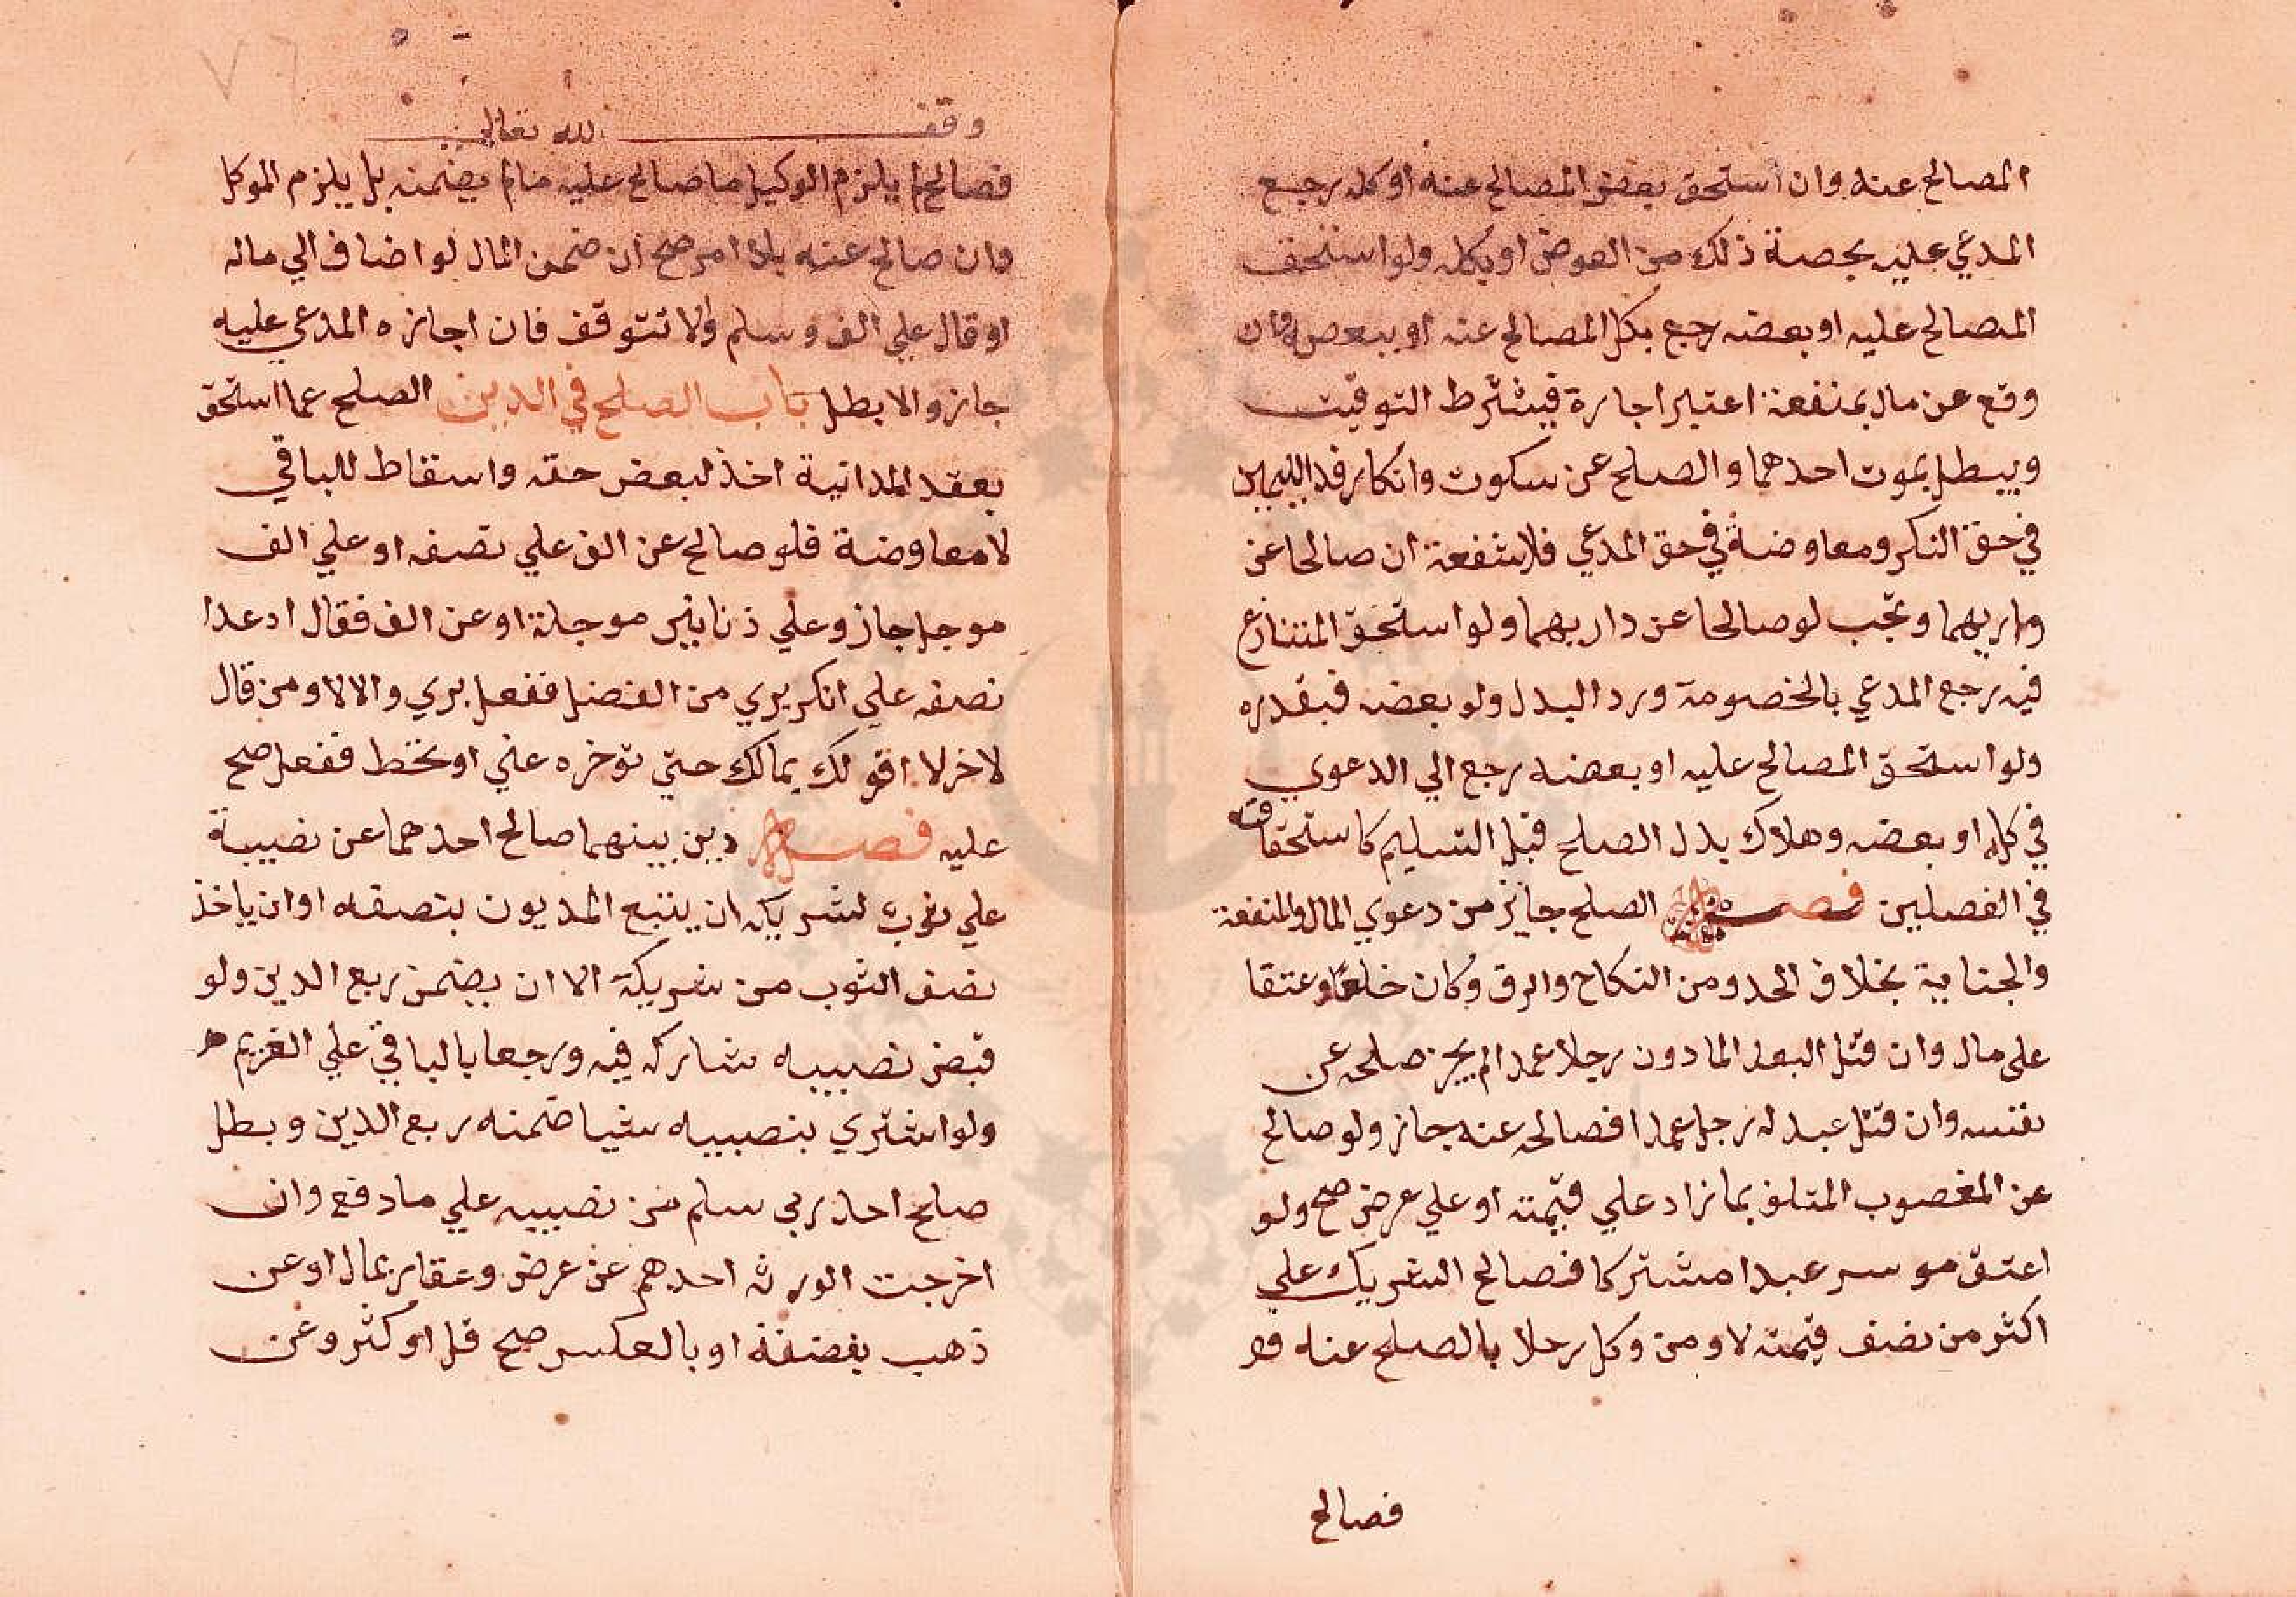 المصالح عنه وان استحق بعض المصالح عنه او كله رجع
المدعي عليه بحصة ذلك من العوض او بكله ولو استحق
المصالح عليه او بعضه رجع بكل المصالح عنه او ببعضه وان
وقع عن مال بمنفعة اعتبر اجارة فيشترط التوقيت
ويبطل بموت احدهما والصلح عن سكوت وانكار فدا لليمين
في حق النكر ومعاوضة في حق المدعي فلا شفعة ان صالحا عن
داريهما وتجب لو صالحا عن داريهما ولو استحق المتنازع
فيه رجع المدعي بالخصومة ورد البدل ولو بعضه فبقدره
ولو استحق المصالح عليه او بعضه رجع الي الدعوي
في كله او بعضه وهلاك بدل الصلح قبل التسليم كاستحقاقه
في الفصلين فصل الصلح جايز من دعوي المال والمنفعة
والجناية بخلاف الحد ومن النكاح والرق وكان خلعا وعتقا
على مال وان قتل البعد المادون رجلا عمدا لم يجز صلحه عن
نفسه وان قتل عبد له رجل عمدا فصالحه عنه جاز ولو صالح
عن المغصوب المتلف بما زاد علي قيمته او علي عرض صح ولو
اعتق موسر عبدا مشتركا فصالح الشريك علي
اكثر من نصف قيمته لا ومن وكل رجلا بالصلح عنه
فصالح
وقف لله تعالى
فصالح لم يلزم الوكيل ما صالح عليه ما لم يضمنه بل يلزم الموكل
وان صالح عنه بلا امر صح ان ضمن المال لو اضاف الي ماله
او قال علي الف وسلم ولا تتوقف فان اجازه المدعي عليه
جاز والا بطل باب الصلح في الدين الصلح عما استحق
بعقد المداينة اخذ لبعض حقه واسقاط للباقي
لا معاوضة فلو صالح عن الف علي نصفه او علي الف
موجل جاز وعلي دنانير موجلة او عن الف فقال اد غدا
نصفه علي انك بري من الفضل ففعل بري والا لا ومن قال
لاخر لا اقر لك بمالك حتي توخره عني او تحط ففعل صح
عليه فصل دين بينهما صالح احدهما عن نصيبه
علي ثوب لشريكه ان يتبع المديون بنصفه او ان ياخذ
نصف الثوب من شريكه الا ان يضمن ربع الدين ولو
قبض نصيبه شاركه فيه ورجعا بالباقي علي الغريم
ولو اشتري بنصيبه شيا ضمنه ربع الدين وبطل
صلح احد ربي سلم من نصيبه علي ما دفع وان
اخرجت الورثه احدهم عن عرض وعقار بمال او عن
ذهب بفضة او بالعكس صح قل او كثر وعن